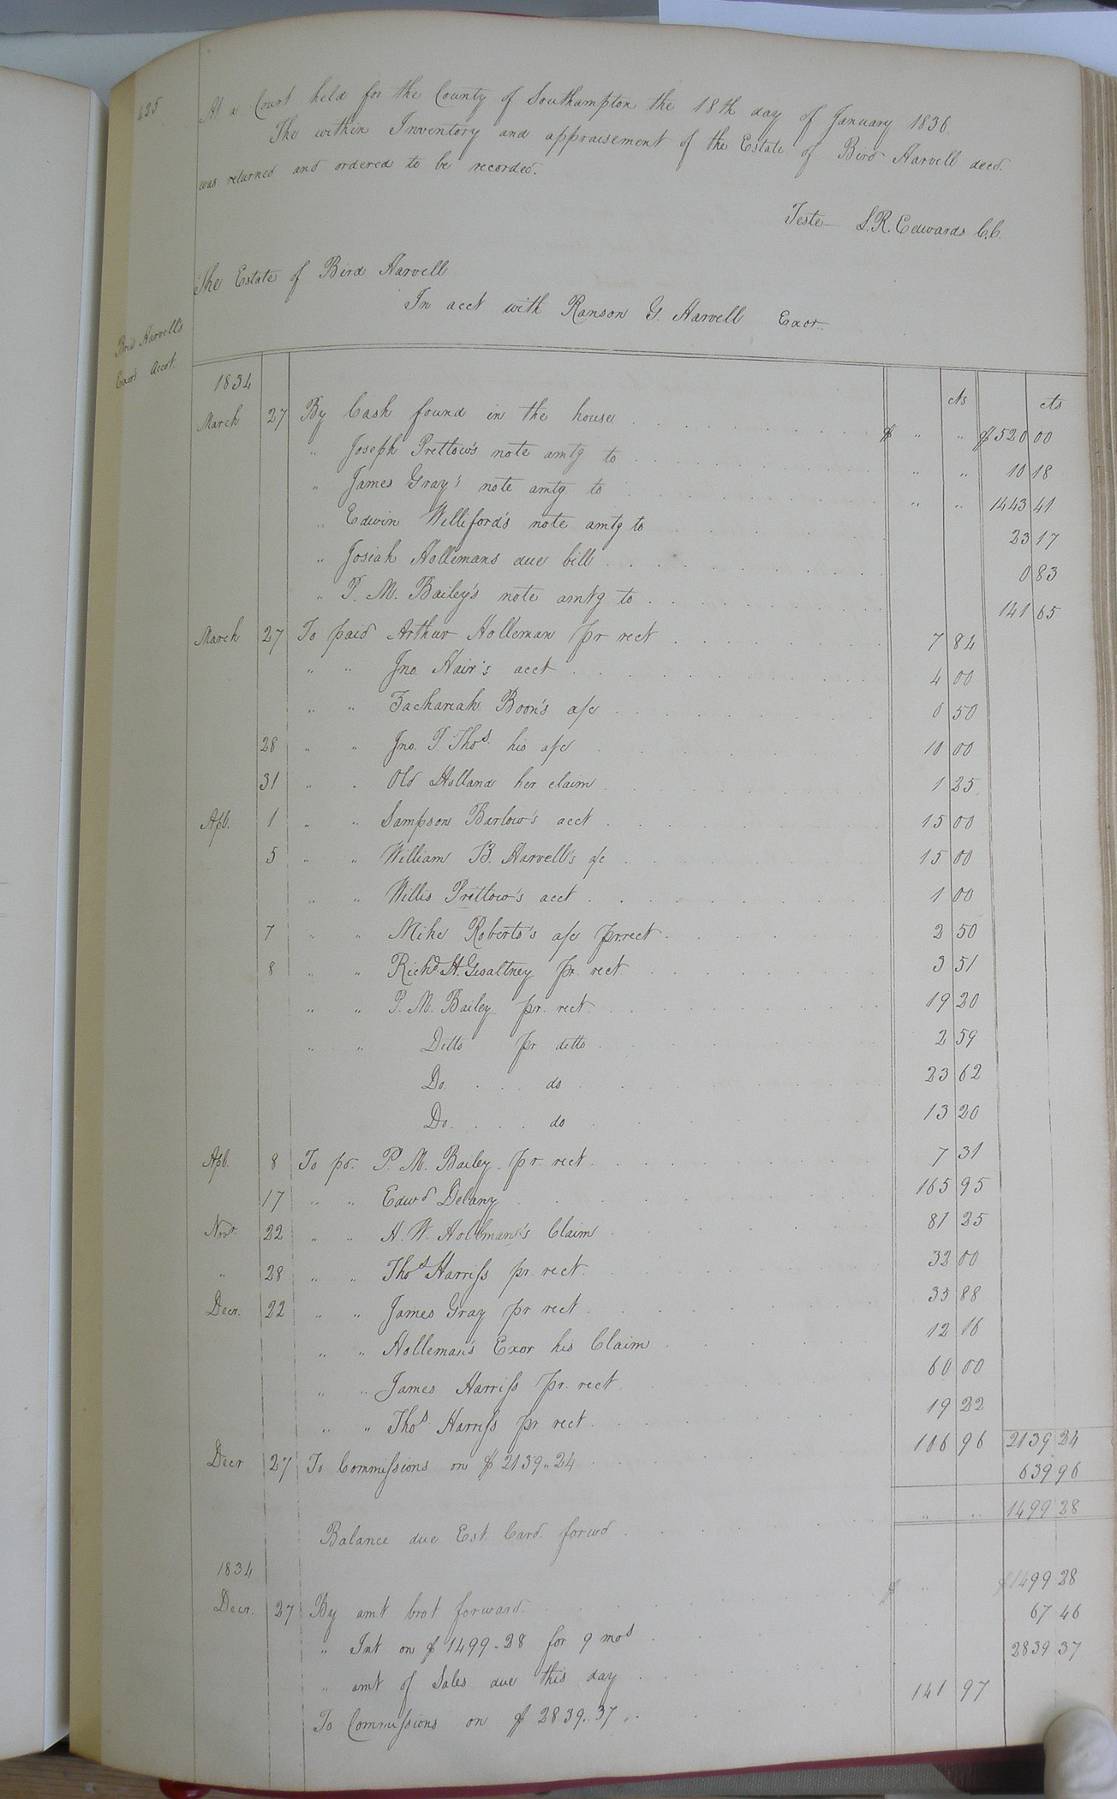 125
At a Court held for the County of Southampton the 18th day of January 1836.
The within Inventory and appraisement of the Estate of Bird Harvell decd.
was returned and ordered to be recorded.
Teste L.R. Edwards C.C.
The Estate of Bird Harvell
In acct with Ranson G. Harvell Exor.
Bird Harvell's
Exors Accot.
1834 cts cts
March 27 By Cash found in the house $ " " $ 520 00
" Joseph Prettow's note amtg to " " 10 18
" James Gray's note amtg to " " 1443 41
" Edwin Williford's note amtg to 23 17
" Josiah Hollemans due bill 0 83
" P. M. Bailey's note amtg to 141 65
March 27 To paid Arthur Holleman pr rect 7 84
" " Jno. Hair's acct 4 00
" " Zachariah Boon's a/c 0 50
28 " " Jno. P Thos. his a/c 10 00
31 " " Old Holland her claim 1 25
Apl. 1 " " Sampson Barlow's acct 15 00
5 " " William B. Harvell's a/c 15 00
" " Willis Prettow's acct 1 00
7 " " Mike Roberts's a/c pr.rect 2 50
8 " " Richd H. Gwaltney pr. rect 3 51
" " P. M. Bailey pr. rect 19 20
" " Ditto pr ditto 2 59
Do. do 23 62
Do. do 13 20
Apl. 8 To pd. P. M. Bailey pr rect 7 31
17 " " Edwd Delany 165 95
Novr 22 " " H. W. Holleman's Claim 81 25
" 28 " " Thos Harriss pr. rect. 32 00
Decr. 22 " " James Gray pr rect 33 88
" " Holleman's Exor his Claim 12 16
" " James Harriss pr. rect 60 00
" " Thos Harriss pr rect. 19 22
Decr 27 To Commissions on $2139.24 106 96 2139 24
639 96
Balance due Est. Card. forwd " " 1499 28
1834
Decr. 27 By amt brot forward $ $1499 28
" Int on $1499.28 for 9 mos 67 46
" amt of Sales due this day 2839 37
To Commissions on $2839.37 141 97